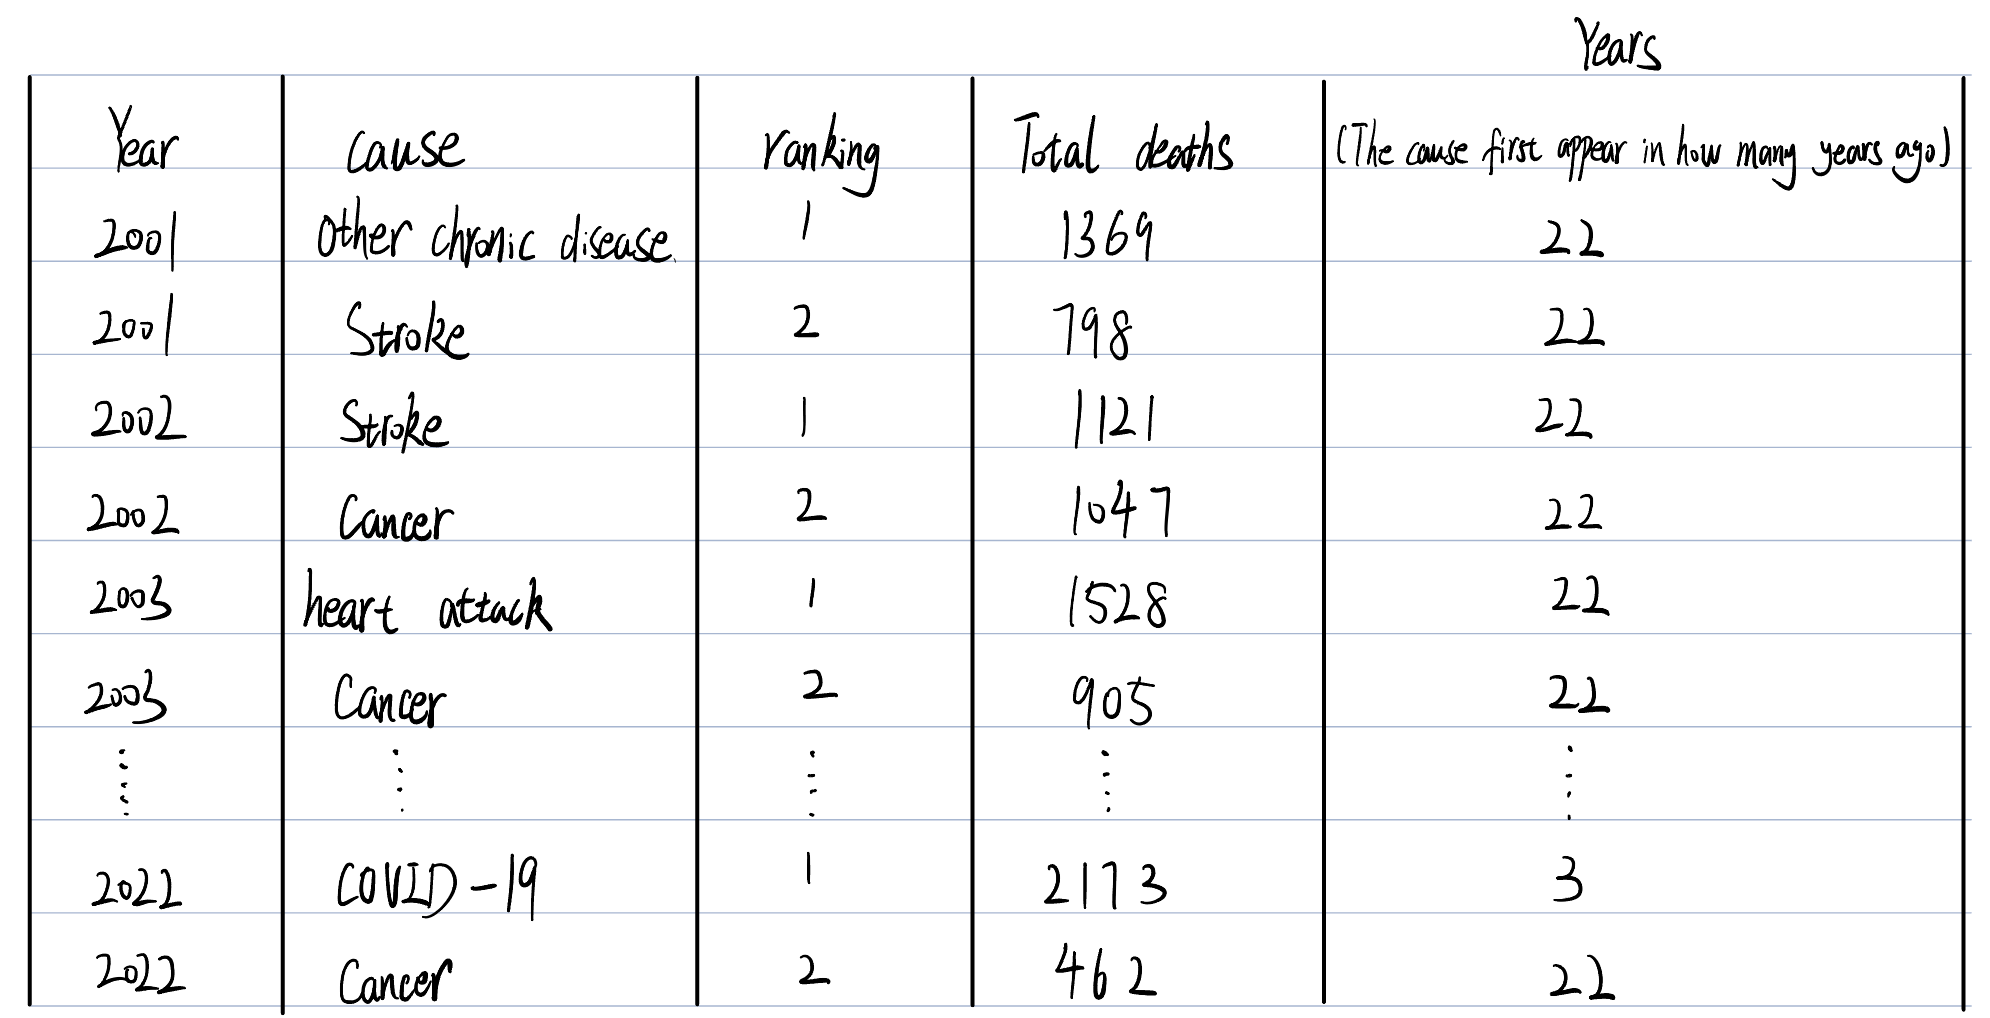 Years
Year cause ranking Total deaths (The cause first appear in how many years ago)
2001 Other chronic disease. 1 1369 22
2001 Stroke 2 798 22
2002 Stroke 1 1121 22
2002 Cancer 2 1047 22
2003 heart attack 1 1528 22
2003 Cancer 2 905 22
2022 COVID-19 1 2173 3
2022 Cancer 2 462 22